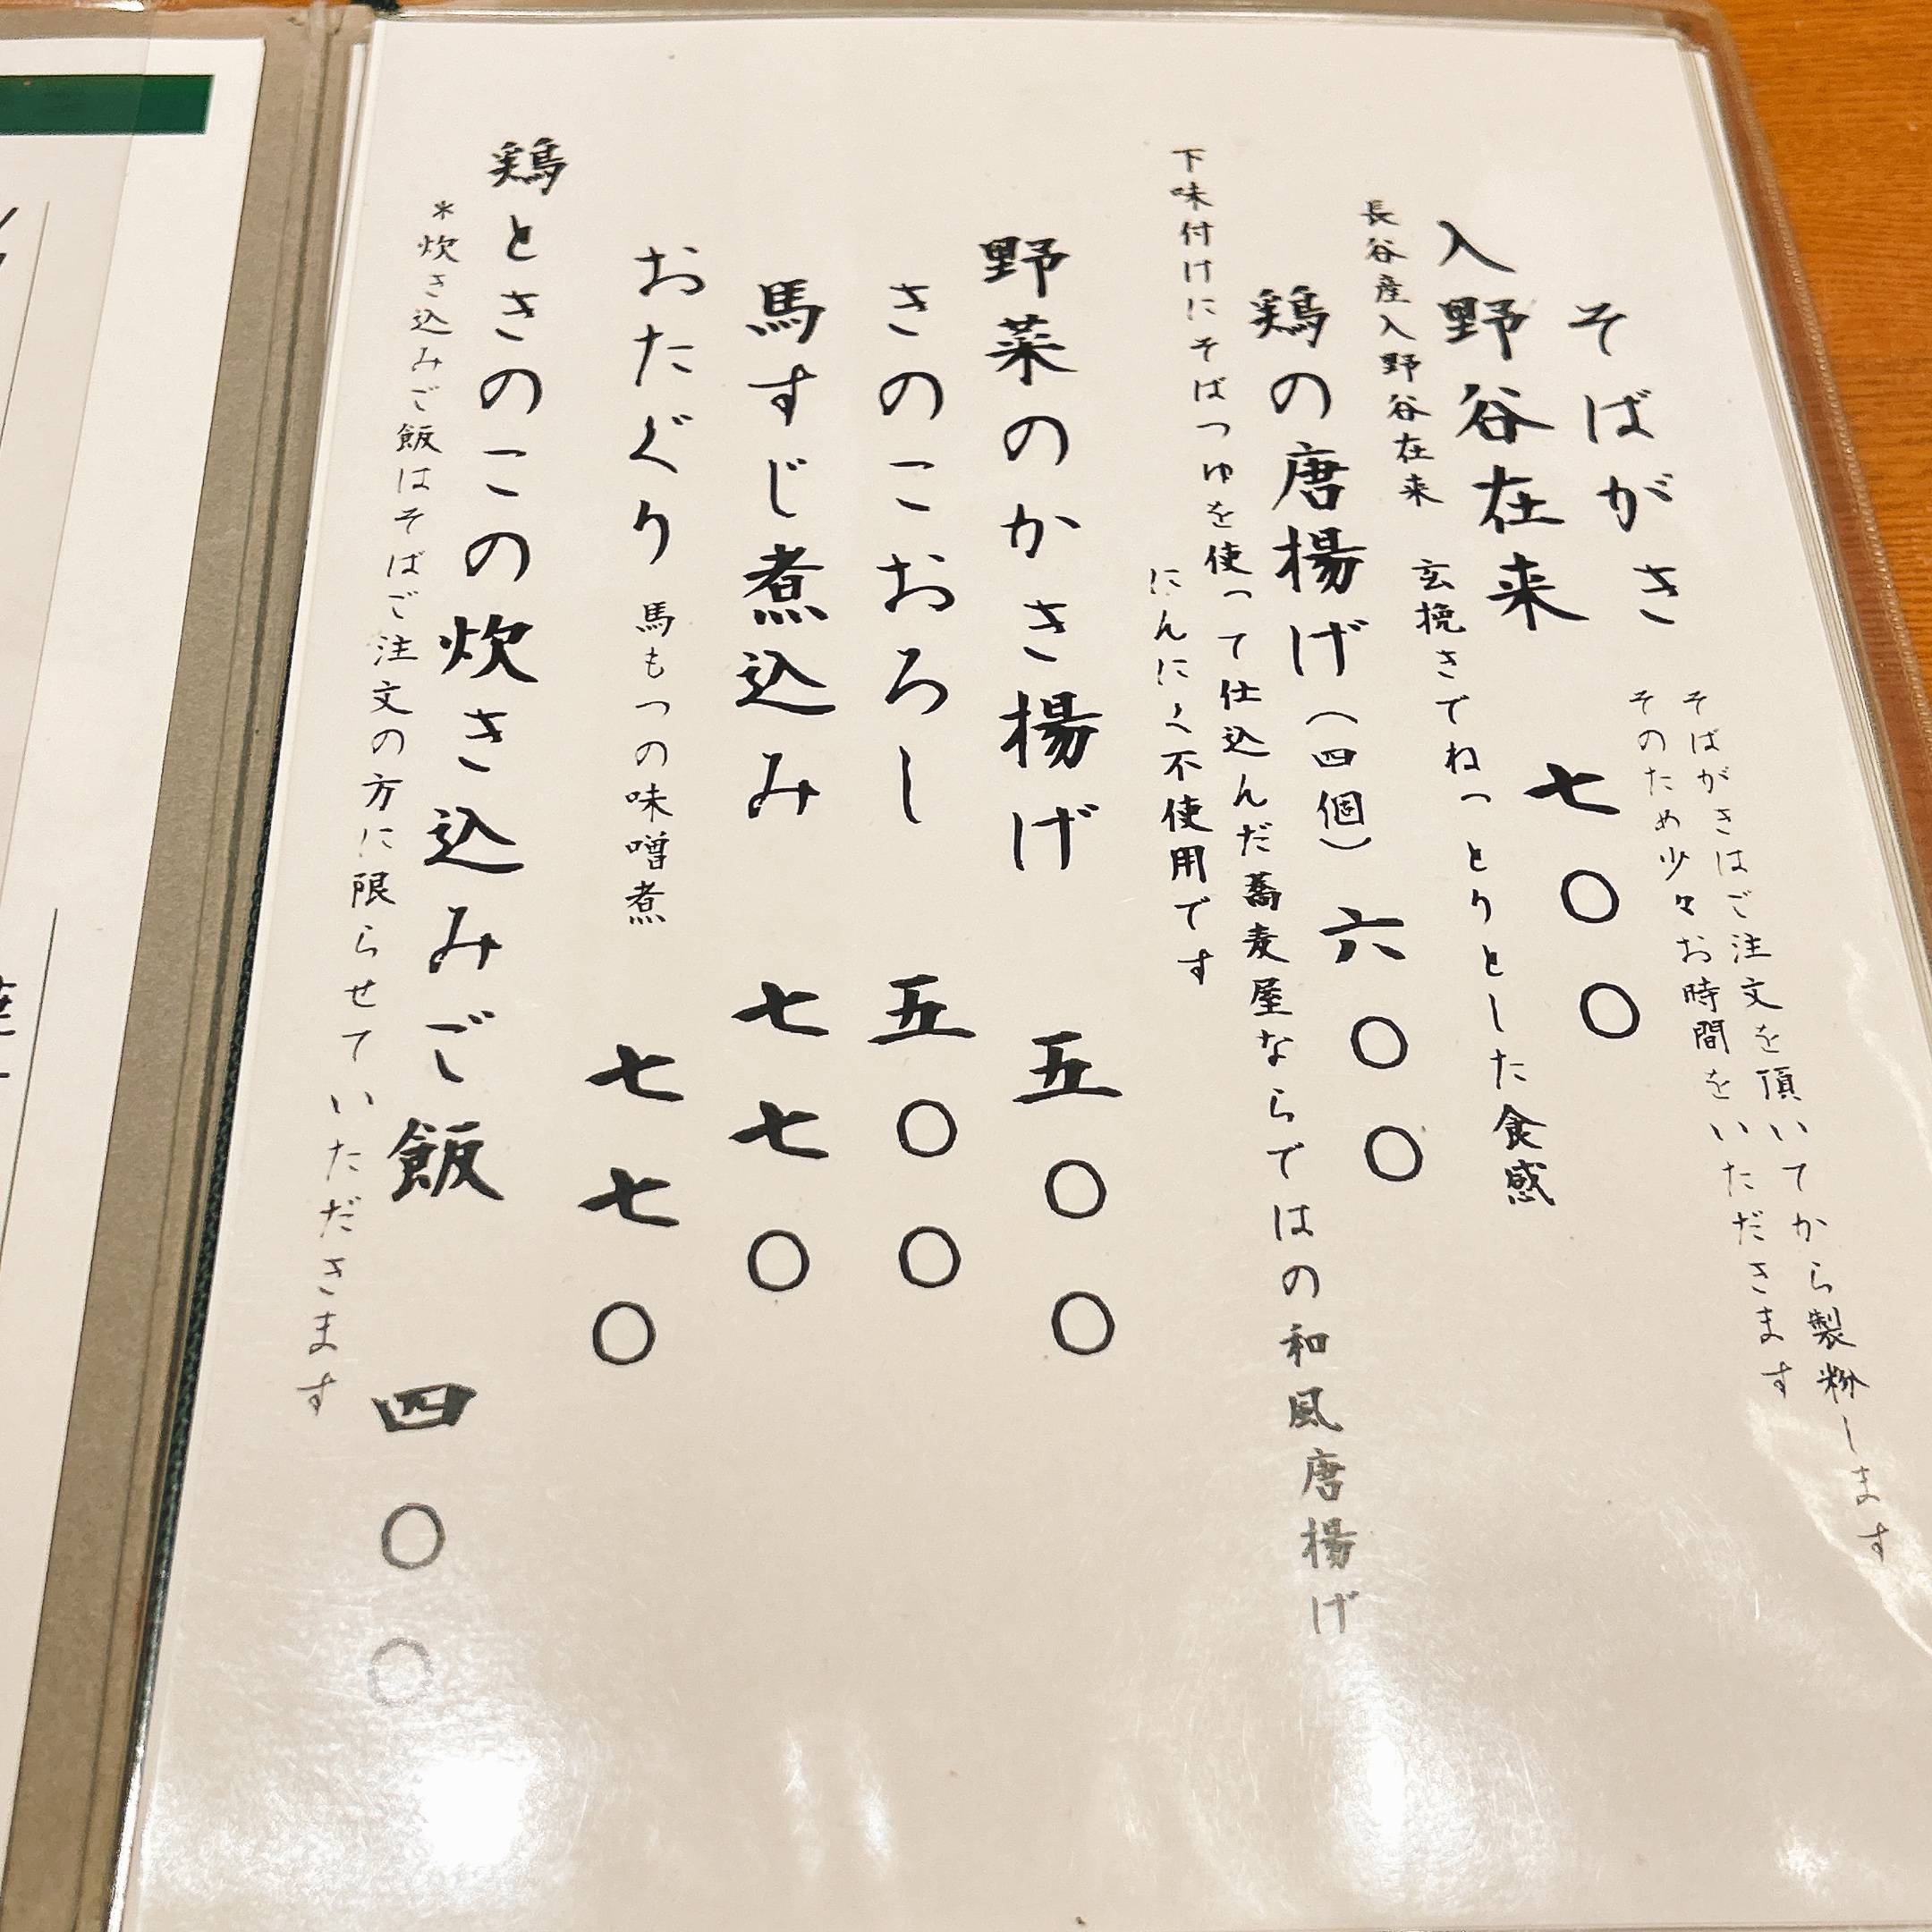 そばがき
そばがきはご注文を頂いてから製粉します
そのため少々お時間をいただきます
入野谷在来 七〇〇
長谷産入野谷在来 玄挽きでねっとりとした食感
鶏の唐揚げ(四個) 六〇〇
下味付けにそばつゆを使って仕込んだ蕎麦屋ならではの和風唐揚げ
にんにく不使用です
野菜のかき揚げ 五〇〇
きのこおろし 五〇〇
馬すじ煮込み 七七〇
おたぐり 馬もつの味噌煮 七七〇
鶏ときのこの炊き込みご飯 四〇〇
*炊き込みご飯はそばご注文の方に限らせていただきます